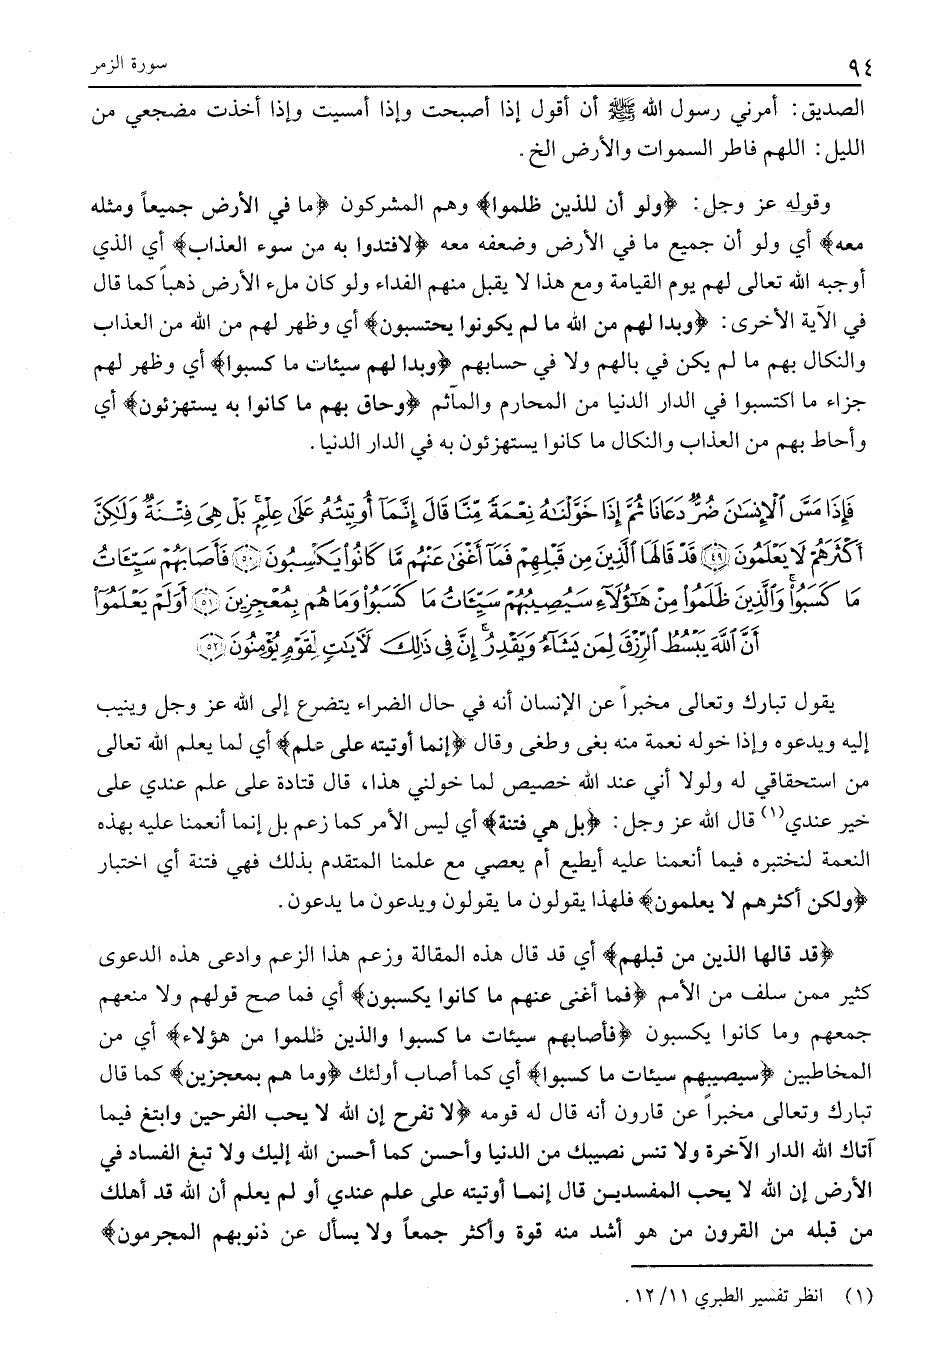 ٩٤
سورة الزمر
الصديق: أمرني رسول الله ﷺ أن أقول إذا أصبحت وإذا أمسيت وإذا أخذت مضجعي من
الليل: اللهم فاطر السموات والأرض الخ.
وقوله عز وجل: ﴿ولو أن للذين ظلموا﴾ وهم المشركون ﴿ما في الأرض جميعاً ومثله
معه﴾ أي ولو أن جميع ما في الأرض وضعفه معه ﴿لافتدوا به من سوء العذاب﴾ أي الذي
أوجبه الله تعالى لهم يوم القيامة ومع هذا لا يقبل منهم الفداء ولو كان ملء الأرض ذهباً كما قال
في الآية الأخرى: ﴿وبدا لهم من الله ما لم يكونوا يحتسبون﴾ أي وظهر لهم من الله من العذاب
والنكال بهم ما لم يكن في بالهم ولا في حسابهم ﴿وبدا لهم سيئات ما كسبوا﴾ أي وظهر لهم
جزاء ما اكتسبوا في الدار الدنيا من المحارم والمآثم ﴿وحاق بهم ما كانوا به يستهزئون﴾ أي
وأحاط بهم من العذاب والنكال ما كانوا يستهزئون به في الدار الدنيا.
فَإِذَا مَسَّ ٱلْإِنسَٰنَ ضُرٌّ دَعَانَا ثُمَّ إِذَا خَوَّلْنَٰهُ نِعْمَةً مِّنَّا قَالَ إِنَّمَآ أُوتِيتُهُۥ عَلَىٰ عِلْمٍۭ ۚ بَلْ هِىَ فِتْنَةٌ وَلَٰكِنَّ
أَكْثَرَهُمْ لَا يَعْلَمُونَ ﴿٤٩﴾ قَدْ قَالَهَا ٱلَّذِينَ مِن قَبْلِهِمْ فَمَآ أَغْنَىٰ عَنْهُم مَّا كَانُوا۟ يَكْسِبُونَ ﴿٥٠﴾ فَأَصَابَهُمْ سَيِّـَٔاتُ
مَا كَسَبُوا۟ ۚ وَٱلَّذِينَ ظَلَمُوا۟ مِنْ هَٰٓؤُلَآءِ سَيُصِيبُهُمْ سَيِّـَٔاتُ مَا كَسَبُوا۟ وَمَا هُم بِمُعْجِزِينَ ﴿٥١﴾ أَوَلَمْ يَعْلَمُوٓا۟
أَنَّ ٱللَّهَ يَبْسُطُ ٱلرِّزْقَ لِمَن يَشَآءُ وَيَقْدِرُ ۚ إِنَّ فِى ذَٰلِكَ لَـَٔايَٰتٍ لِّقَوْمٍ يُؤْمِنُونَ ﴿٥٢﴾
يقول تبارك وتعالى مخبراً عن الإنسان أنه في حال الضراء يتضرع إلى الله عز وجل وينيب
إليه ويدعوه وإذا خوله نعمة منه بغى وطغى وقال ﴿إنما أوتيته على علم﴾ أي لما يعلم الله تعالى
من استحقاقي له ولولا أني عند الله خصيص لما خولني هذا، قال قتادة على علم عندي على
خير عندي(١) قال الله عز وجل: ﴿بل هي فتنة﴾ أي ليس الأمر كما زعم بل إنما أنعمنا عليه بهذه
النعمة لنختبره فيما أنعمنا عليه أيطيع أم يعصي مع علمنا المتقدم بذلك فهي فتنة أي اختبار
﴿ولكن أكثرهم لا يعلمون﴾ فلهذا يقولون ما يقولون ويدعون ما يدعون.
﴿قد قالها الذين من قبلهم﴾ أي قد قال هذه المقالة وزعم هذا الزعم وادعى هذه الدعوى
كثير ممن سلف من الأمم ﴿فما أغنى عنهم ما كانوا يكسبون﴾ أي فما صح قولهم ولا منعهم
جمعهم وما كانوا يكسبون ﴿فأصابهم سيئات ما كسبوا والذين ظلموا من هؤلاء﴾ أي من
المخاطبين ﴿سيصيبهم سيئات ما كسبوا﴾ أي كما أصاب أولئك ﴿وما هم بمعجزين﴾ كما قال
تبارك وتعالى مخبراً عن قارون أنه قال له قومه ﴿لا تفرح إن الله لا يحب الفرحين وابتغ فيما
آتاك الله الدار الآخرة ولا تنس نصيبك من الدنيا وأحسن كما أحسن الله إليك ولا تبغ الفساد في
الأرض إن الله لا يحب المفسدين قال إنما أوتيته على علم عندي أو لم يعلم أن الله قد أهلك
من قبله من القرون من هو أشد منه قوة وأكثر جمعاً ولا يسأل عن ذنوبهم المجرمون﴾
(١) انظر تفسير الطبري ١١/ ١٢.